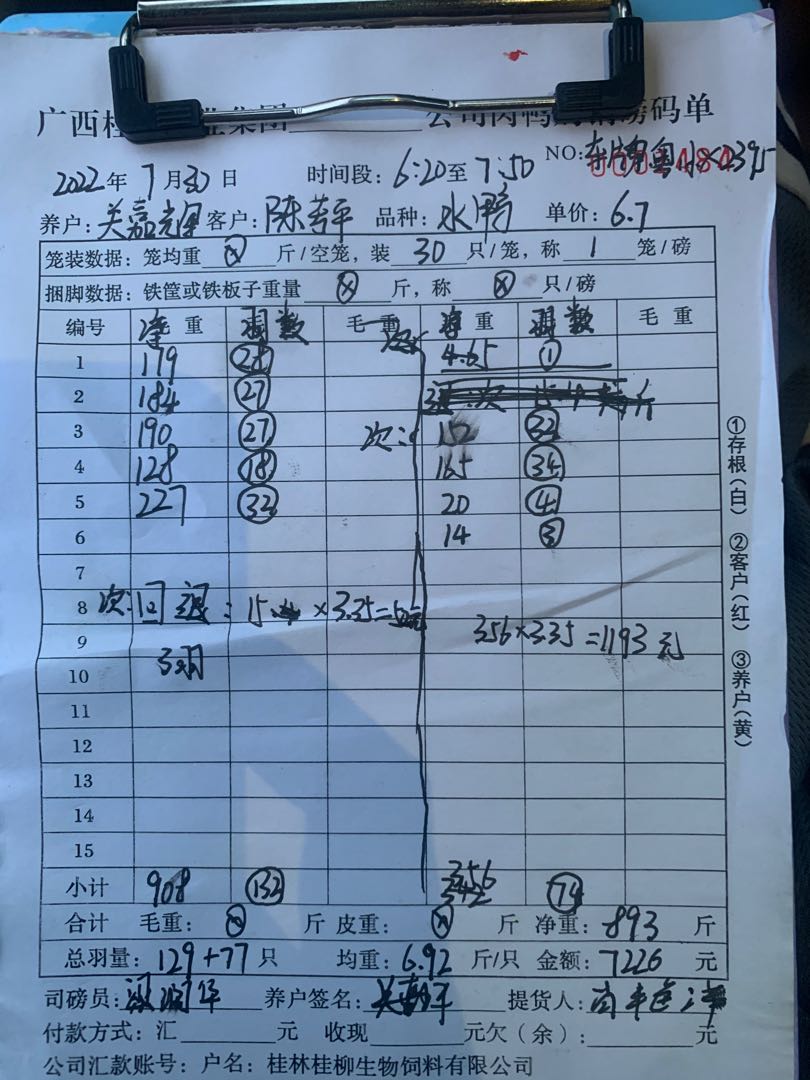 广西桂 集团 公司肉鸭 磅码单
NO: 车牌粤
2022年7月30日 时间段: 6:20至7:50
养户: 关嘉 客户: 陈芳平 品种: 水鸭 单价: 6.7
笼装数据: 笼均重 ⊗ 斤/空笼, 装 30 只/笼, 称 1 笼/磅
捆脚数据: 铁筐或铁板子重量 ⊗ 斤, 称 ⊗ 只/磅
编号 净重 羽数 毛重 净重 羽数 毛重
1 179 28 次: 4.65 1
2 184 27
3 190 27 次: 32
4 128 18 165 34
5 227 32 20 4
6 14 3
7
8 次: 回退: 15 × 3.35=
9 356×3.35=1193元
10 3羽
11
12
13
14
15
小计 908 132 356 74
合计 毛重: ⊗ 斤 皮重: ⊗ 斤 净重: 893 斤
总羽量: 129+77 只 均重: 6.92 斤/只 金额: 7226 元
司磅员: 养户签名: 提货人:
付款方式: 汇 元 收现 元欠(余): 元
公司汇款账号: 户名: 桂林桂柳生物饲料有限公司
①存根(白) ②客户(红) ③养户(黄)